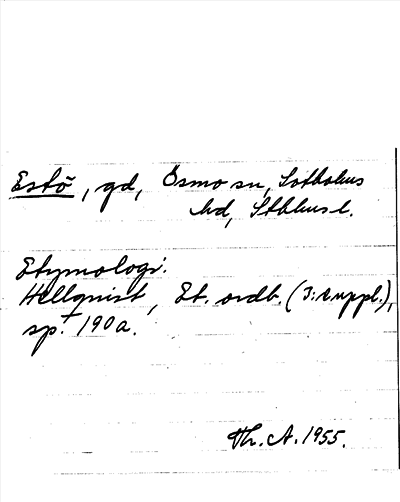 Estö, gd, Ösmo sn, Sotholms
hd, Sthlms l.
Etymologi:
Hellquist, Et. ordb. (I: suppl.),
sp. 190a.
Th. A. 1955.